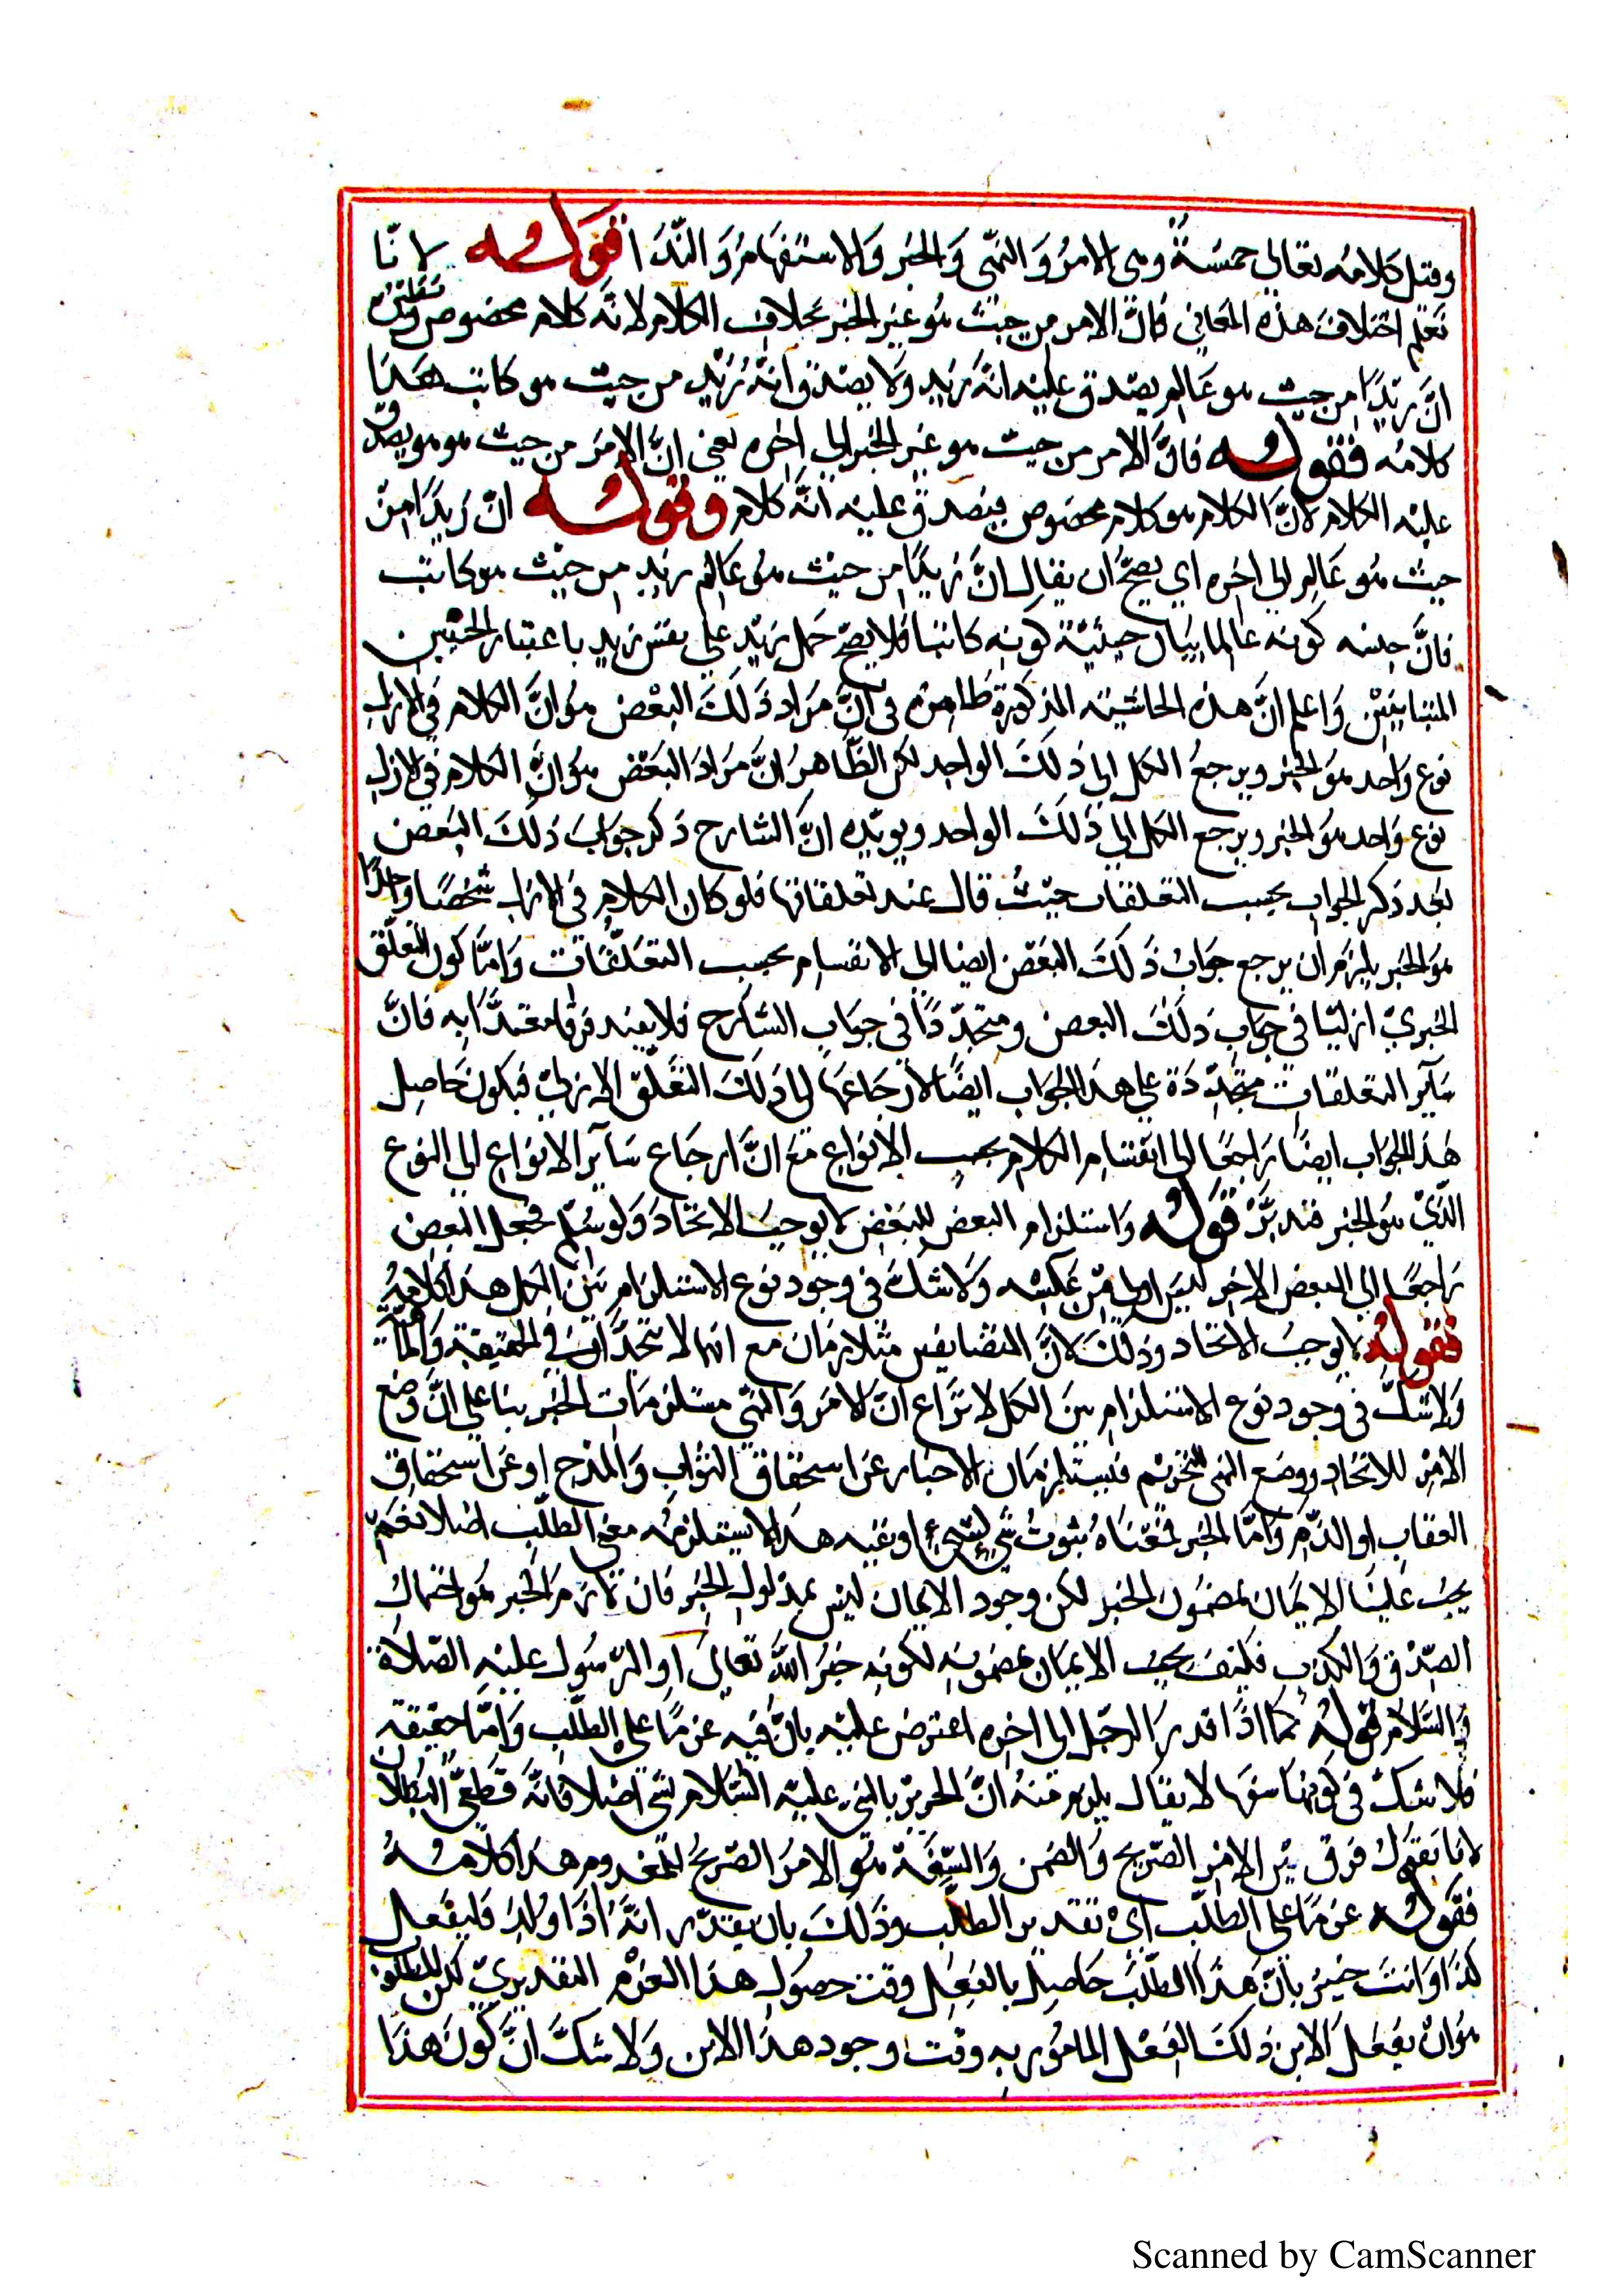 وقيل كلامه تعالى خمسة وهي الامر والنهي والخبر والاستفهام والندا فقوله لانا
نعلم اختلاف هذه المعاني فان الامر من حيث هو غير الخبر بخلاف الكلام لانه كلام مخصوص
ان زيدا من حيث هو عالم يصدق عليه انه زيد ولا يصدق انه زيد من حيث هو كاتب هذا
كلامه فقوله فان الامر من حيث هو غير الخبر الى اخره يعني ان الامر من حيث هو هو يصدق
عليه الكلام لان الكلام هو كلام مخصوص فيصدق عليه انه كلام وقوله ان زيدا من
حيث هو عالم الى اخره اي يصح ان يقال ان زيدا من حيث هو عالم زيد من حيث هو كاتب
فان كونه عالما كونه كاتبا فلا يصح حمل زيد على نفس زيد باعتبار الحيثيتين
المتباينتين واعلم ان هذه الحاشية المذكورة ظاهرة في ان مراد ذلك البعض هو ان الكلام في الازل
نوع واحد هو الخبر ويرجع الكل الى ذلك الواحد لكن الظاهر ان مراد البعض هو ان الكلام في الازل
نوع واحد هو الخبر ويرجع الكل الى ذلك الواحد ويويده ان الشارح ذكر جواب ذلك البعض
بعد ذكر الجواب بحسب التعلقات حيث قال عند تعلقاتها فلو كان الكلام في الازل شخصا واحدا
هو الخبر يلزم ان يرجع جواب ذلك البعض ايضا الى الانقسام بحسب التعلقات واما كون التعلق
الخبري ازليا في جواب ذلك البعض ومتجددا في جواب الشارح فلا يفيد فرقا معتدا به فان
سآير التعلقات متجددة على هذا الجواب ايضا لارجاعها الى ذلك التعلق الازلي فيكون حاصل
هذا الجواب ايضا راجعا الى انقسام الكلام بحسب الانواع مع ان ارجاع سآير الانواع الى النوع
الذي هو الخبر فتدبر قوله واستلزام البعض للبعض لا يوجب الاتحاد ولو سلم فجعل البعض
راجعا الى البعض الاخر ليس اولى من عكسه ولا شك في وجود نوع الاستلزام بين الكل هذا كلامه
فقوله لا يوجب الاتحاد وذلك لان المتضايفين متلازمان مع انهما لا يتحدان في الحقيقة والماهية
ولا شك في وجود نوع الاستلزام بين الكل لا نزاع ان الامر والنهي مستلزمات الخبر بنا على ان وضع
الامر للاتحاد ووضع النهي للتحريم فيستلزمان الاخبار عن استحقاق الثواب والمدح او عن استحقاق
العقاب او الذم واما الخبر فمعناه ثبوت شي لشي او نفيه هذا لا يستلزمه معنى الطلب اصلا نعم
يجب علينا الايمان بمضمون الخبر لكن وجود الايمان ليس بمدلول الخبر فان لازم الخبر هو احتمال
الصدق والكذب فكيف يجب الايمان بمضمونه لكونه خبر الله تعالى او الرسول عليه الصلاة
والسلام قوله كما اذا قدر الرجل الى اخره اعترض عليه بان فيه عزما على الطلب واما حقيقته
فلا شك في كونها سفها لا يقال يلزم منه ان عليه السلام شي اصلا فانه قطعي البطلان
لانا نقول فرق بين الامر الصريح والضمن والسفه هو الامر الصريح للمعدوم هذا كلامه
فقوله عزما على الطلب اي تقدير الطلب وذلك بان يقدر انه اذا ولد فليفعل
كذا وانت خبير بان هذا الطلب حاصل بالفعل وقت حصول هذا العزم التقديري لكن المطلوب
هو ان يفعل الابن ذلك الفعل المامور به وقت وجود هذا الابن ولا شك ان كون هذا
Scanned by CamScanner